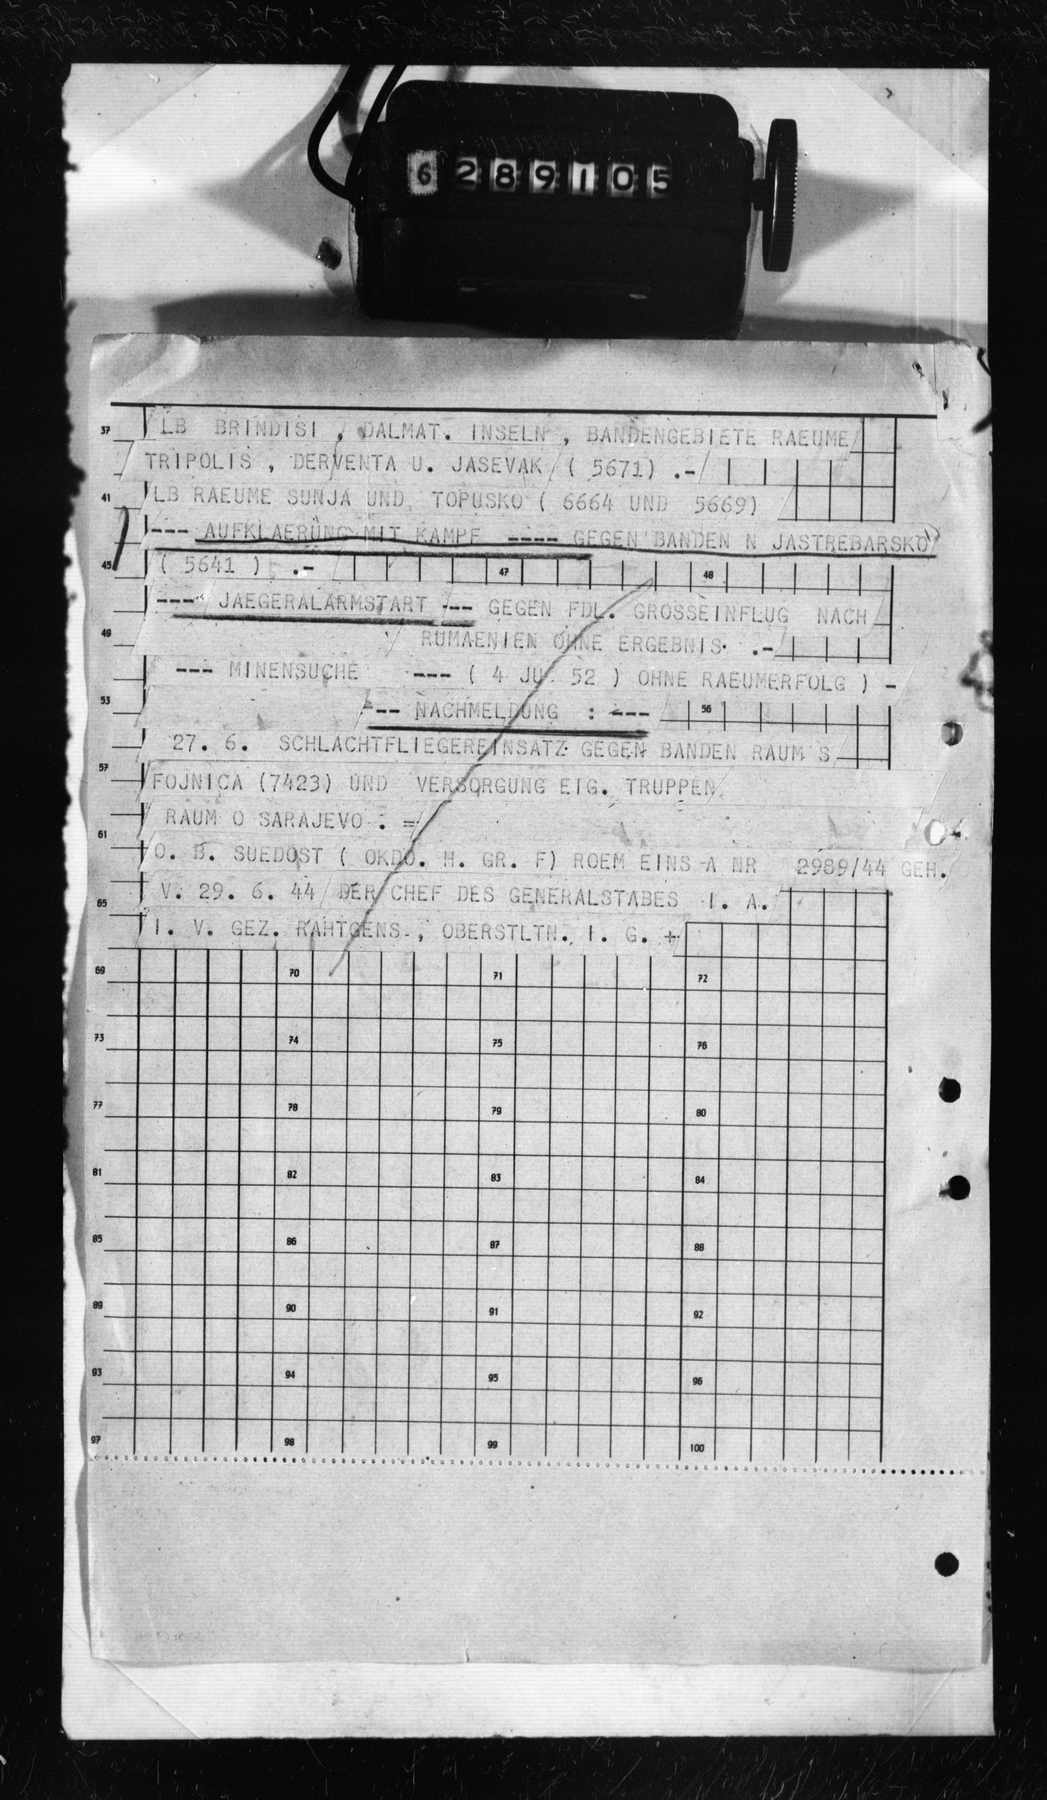 6289105
37 LB BRINDISI , DALMAT. INSELN , BANDENGEBIETE RAEUME
TRIPOLIS , DERVENTA U. JASEVAK ( 5671) .-
41 LB RAEUME SUNJA UND TOPUSKO ( 6664 UND 5669)
--- AUFKLAERUNG MIT KAMPF ---- GEGEN BANDEN N JASTREBARSKO
45 ( 5641 ) .- 47 48
--- JAEGERALARMSTART --- GEGEN FDL. GROSSEINFLUG NACH
49 RUMAENIEN OHNE ERGEBNIS .-
--- MINENSUCHE --- ( 4 JU 52 ) OHNE RAEUMERFOLG ) -
53 --- NACHMELDUNG : --- 56
27. 6. SCHLACHTFLIEGEREINSATZ GEGEN BANDEN RAUM S
57 FOJNICA (7423) UND VERSORGUNG EIG. TRUPPEN
RAUM O SARAJEVO . =
61 O. B. SUEDOST ( OKDO. H. GR. F) ROEM EINS A NR 2989/44 GEH.
V. 29. 6. 44 DER CHEF DES GENERALSTABES I. A.
65 I. V. GEZ. RAHTGENS , OBERSTLTN. I. G. +
69 70 71 72
73 74 75 76
77 78 79 80
81 82 83 84
85 86 87 88
89 90 91 92
93 94 95 96
97 98 99 100